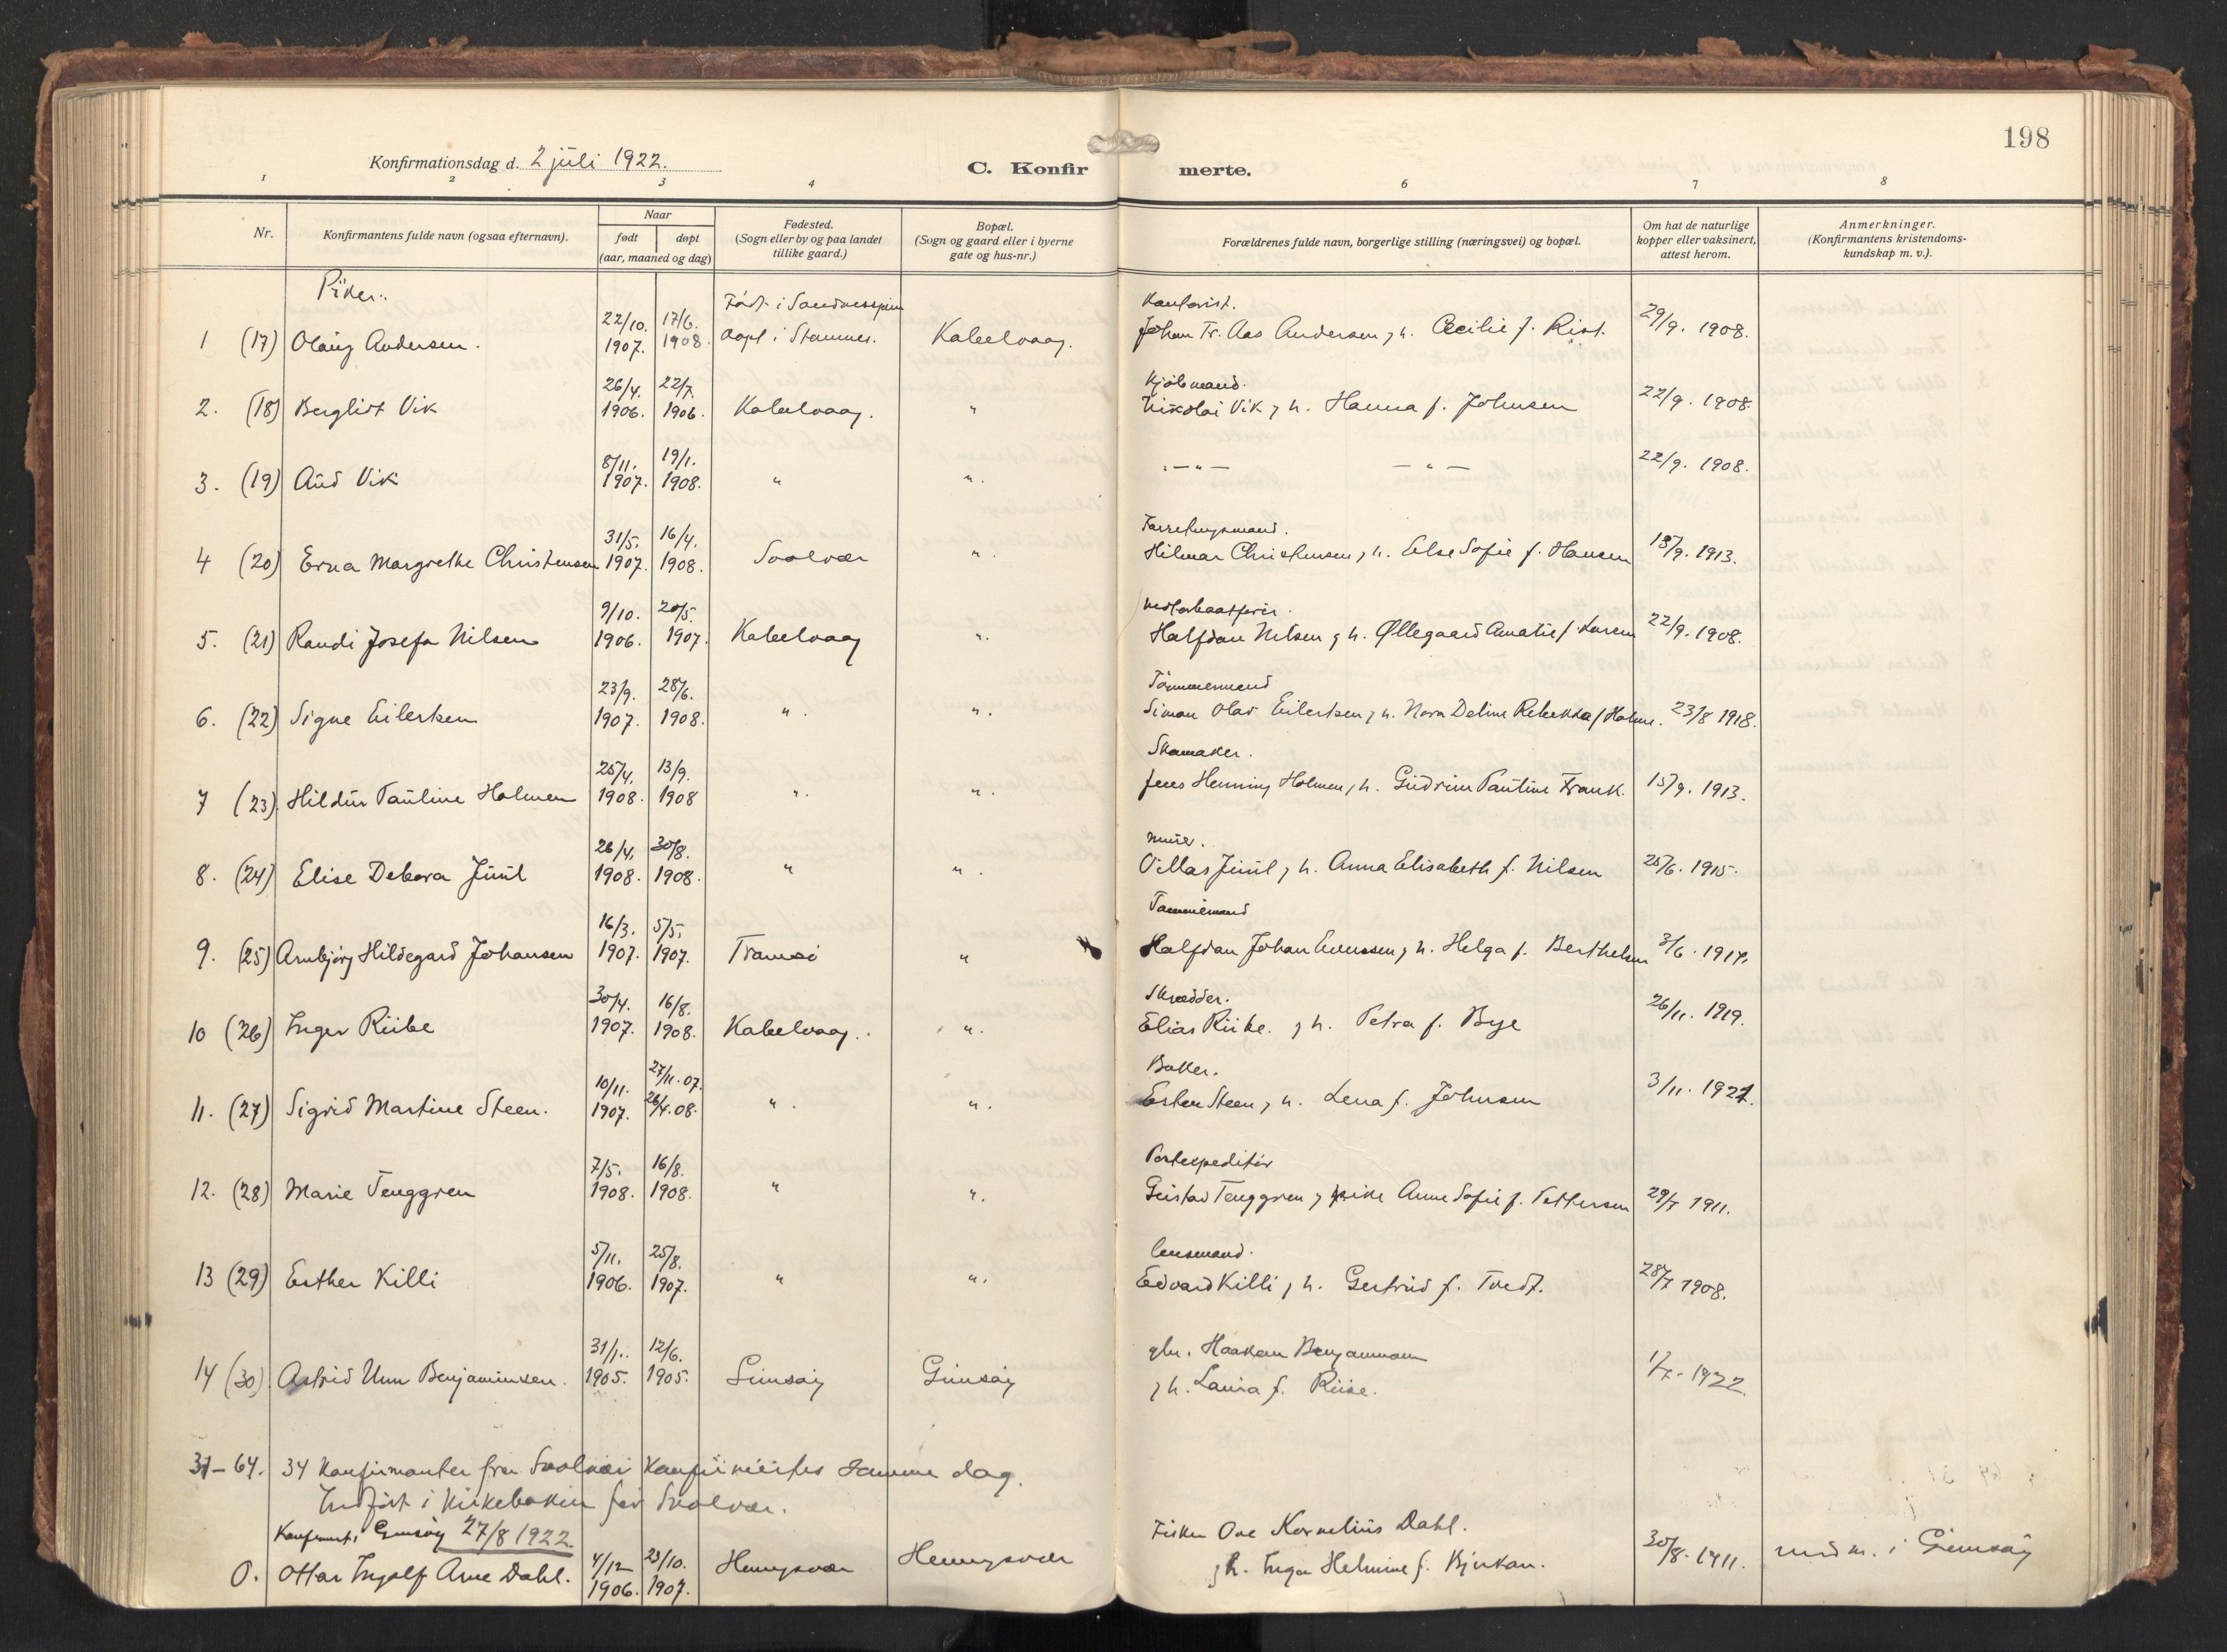 198
Konfirmationsdag d. 2 juli 1922.
C. Konfirmerte.
1 2 3 4 6 7 8
Nr. Konfirmantens fulde navn (ogsaa efternavn). Naar født døpt (aar, maaned og dag) Fødested. (Sogn eller by og paa landet tillike gaard.) Bopæl. (Sogn og gaard eller i byerne gate og hus-nr.) Forældrenes fulde navn, borgerlige stilling (næringsvei) og bopæl. Om hat de naturlige kopper eller vaksinert, attest herom. Anmerkninger. (Konfirmantens kristendoms-kundskap m. v.).
Piker.
22/10. 17/6. Født i
1 (17) Olaug Andersen. 1907. 1908. døpt i Stamnes. Kabelvaag. Johan Fr. Aas Andersen, h. Cecilie f. Rist. 29/9. 1908.
26/4. 22/7. Kjøbmand.
2. (18) Bergliot Vik 1906. 1906. Kabelvaag. " Nikolai Vik, h. Hanna f. Johnsen 22/9. 1908.
8/11. 19/1.
3. (19) Aud Vik 1907. 1908. " ". — " — — " — 22/9. 1908.
31/5. 16/4. Forretningsmand.
4 (20) Erna Margrethe Christensen 1907. 1908. Svolvær ". Hilmar Christensen, h. Else Sofie f. Hansen 18/9. 1913.
9/10. 20/5.
5. (21) Randi Josefa Nilsen 1906. 1907. Kabelvaag ". Halfdan Nilsen, h. Øllegaard Amalie f. 22/9. 1908.
23/9. 28/6. Tømmermand
6. (22) Signe Eilertsen 1907. 1908. ". ". Simon Olav Eilertsen, h. Nora Deline Rebekka f. 23/8 1918.
25/4. 13/9. Skomaker.
7 (23) Hildur Pauline Holmen 1908. 1908 ". ". Jens Henning Holmen, h. Gudrun Pauline Frank. 15/9. 1913.
26/4. 30/8. Murer.
8. (24) Elise Debora Juul 1908. 1908. " ". Juul, h. Anna Elisabeth f. Nilsen 25/6. 1915.
16/3. 5/5.
9. (25) Arnbjørg Hildegard Johansen 1907. 1907. Tromsø " Halfdan Johan Evensen, h. Helga f. Berthelsen 3/6. 1917.
30/4. 16/8. Skrædder.
10 (26) Inger Riibe 1907. 1908. Kabelvaag. ". Elias Riibe. h. Petra f. Bye 26/11. 1919.
10/11. 27/11. 07. Baker.
11. (27) Sigrid Martine Steen. 1907. 26/4. 08. ". ". Steen, h. Lena f. Johnsen 3/11. 1921.
7/5. 16/8. Postexpeditør
12. (28) Marie Tenggren 1908. 1908. " ". Gustav Tenggren, pike Anne Sofie f. Pettersen 29/7 1911.
5/11. 25/8. Lensmand.
13 (29) Esther Killi 1906. 1907. " ". Edvard Killi, h. Gertrud f. Tvedt. 28/7 1908.
31/1. 12/6. Haakon Benjaminsen
14 (30) Astrid Unn Benjaminsen. 1905. 1905. Gimsøy Gimsøy h. Laura f. Riise. 1/7. 1922.
31-64. 34 konfirmanter fra Svolvær konfirmertes samme dag.
Indført i kirkeboken for Svolvær.
Konfirmert i Gimsøy 27/8 1922. 4/12 23/10. Fisker Ove Kornelius Dahl.
0. Ottar Ingolf Arne Dahl. 1906. 1907. Henningsvær Henningsvær h. Inga Helmine f. Bjerkan. 30/8. 1911. m. i Gimsøy